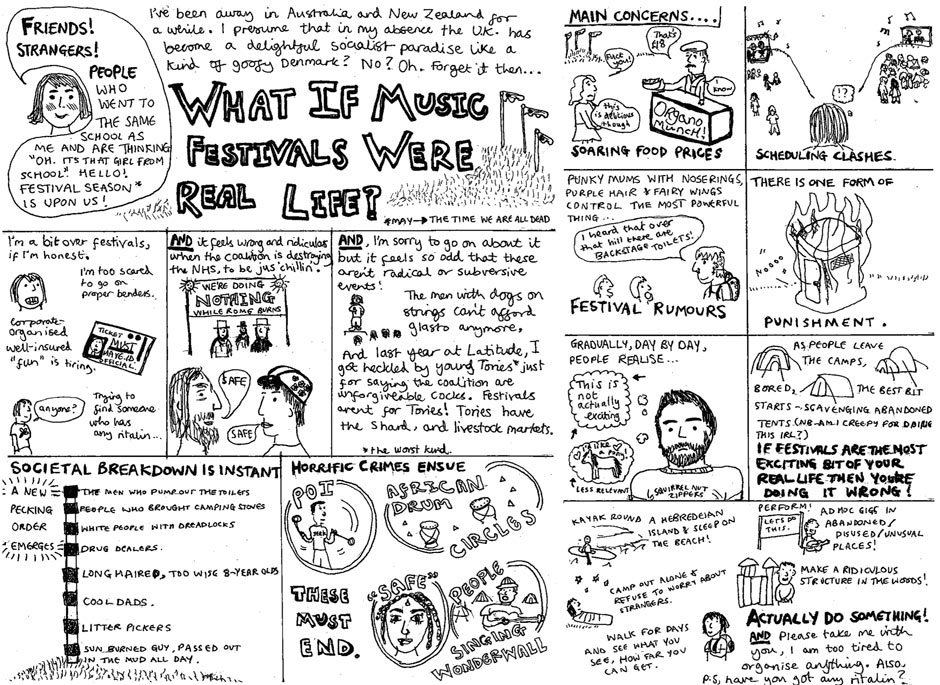 FRIENDS!
STRANGERS!
PEOPLE
WHO
WENT TO
THE SAME
SCHOOL AS
ME AND ARE THINKING
"OH. IT'S THAT GIRL FROM
SCHOOL" HELLO!
FESTIVAL SEASON*
IS UPON US!
I've been away in Australia and New Zealand for
a while. I presume that in my absence the U.K. has
become a delightful socialist paradise like a
kind of goofy Denmark? No? Oh. Forget it then...
WHAT IF MUSIC
FESTIVALS WERE
REAL LIFE?
*MAY → THE TIME WE ARE ALL DEAD
I'm a bit over festivals,
if I'm honest.
I'm too scared
to go on
proper benders..
Corporate-
organised
well-insured
"fun" is tiring.
TICKET
MUST
HAVE I.D
OFFICIAL.
anyone?
Trying to
find someone
who has
any ritalin...
AND it feels wrong and ridiculous
when the coalition is destroying
the NHS, to be jus' chillin'.
WE'RE DOING
NOTHING
WHILE ROME BURNS
SAFE
SAFE
AND, I'm sorry to go on about it
but it feels so odd that these
aren't radical or subversive
events!
The men with dogs on
strings can't afford
glasto anymore,
And last year at Latitude, I
got heckled by young Tories* just
for saying the coalition are
unforgiveable cocks. Festivals
arent for Tories! Tories have
the Shard, and livestock markets.
*the worst kind.
SOCIETAL BREAKDOWN IS INSTANT
A NEW
PECKING
ORDER
EMERGES
THE MEN WHO PUMP OUT THE TOILETS
PEOPLE WHO BROUGHT CAMPING STOVES
WHITE PEOPLE WITH DREADLOCKS
DRUG DEALERS.
LONG HAIRED, TOO WISE 8-YEAR OLDS
COOL DADS.
LITTER PICKERS
SUN BURNED GUY, PASSED OUT
IN THE MUD ALL DAY.
HORRIFIC CRIMES ENSUE
POI
AFRICAN
DRUM
CIRCLES
THESE
MUST
END.
"SAFE"
PEOPLE
SINGING
WONDERWALL
MAIN CONCERNS....
That's
£18
Fuck
you!
I
know
this
is delicious
though
Organo
Munch!
SOARING FOOD PRICES
!?
SCHEDULING CLASHES.
PUNKY MUMS WITH NOSERINGS,
PURPLE HAIR & FAIRY WINGS
CONTROL THE MOST POWERFUL
THING...
I heard that over
that hill there are
BACKSTAGE TOILETS!
FESTIVAL RUMOURS
THERE IS ONE FORM OF
Noooo
PUNISHMENT.
GRADUALLY, DAY BY DAY,
PEOPLE REALISE...
This is
not
actually
exciting
I like
a pony
LESS RELEVANT
SQUIRREL NUT
ZIPPERS
AS PEOPLE LEAVE
THE CAMPS,
BORED, THE BEST BIT
STARTS - SCAVENGING ABANDONED
TENTS (NB-AM I CREEPY FOR DOING
THIS IRL?)
IF FESTIVALS ARE THE MOST
EXCITING BIT OF YOUR
REAL LIFE THEN YOU'RE
DOING IT WRONG!
KAYAK ROUND A HEBREDEIAN
ISLAND & SLEEP ON
THE BEACH!
CAMP OUT ALONE &
REFUSE TO WORRY ABOUT
STRANGERS.
WALK FOR DAYS
AND SEE WHAT YOU
SEE, HOW FAR YOU
CAN GET.
PERFORM!
LET'S DO
THIS.
AD HOC GIGS IN
ABANDONED/
DISUSED/UNUSUAL
PLACES!
MAKE A RIDICULOUS
STRUCTURE IN THE WOODS!
ACTUALLY DO SOMETHING!
AND Please take me with
you, I am too tired to
organise anything. Also,
P.S, have you got any ritalin?